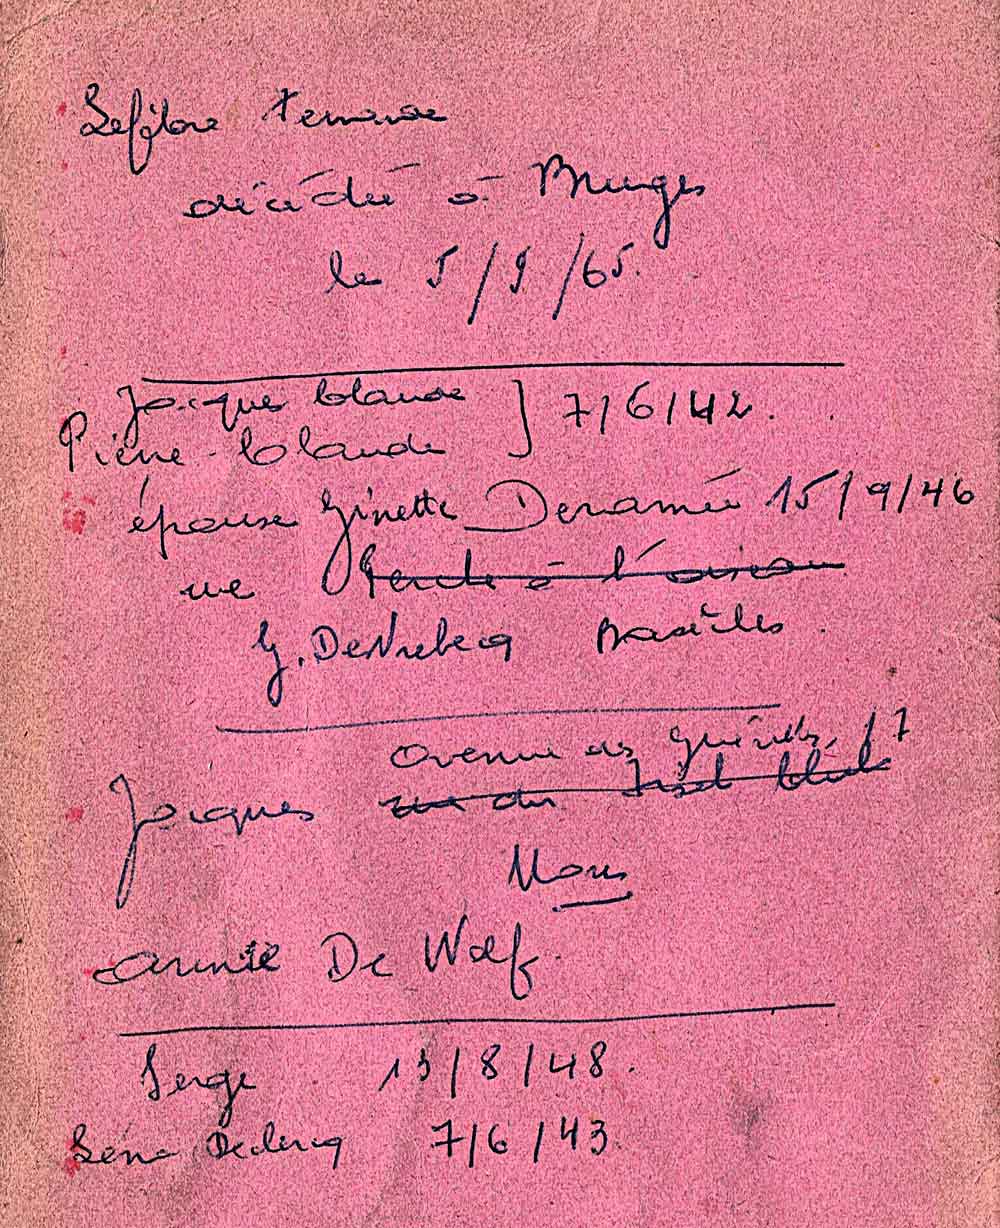 Lefèbvre Fernande
décédé à Bruges
le 5/9/65.
Jacques Claude
Pierre-Claude } 7/6/42.
épouse Ginette Deramée 15/9/46
rue à l'oiseau
G. Basècles.
avenue des 17
Jacques rue du
Mons
Annie De Wolf.
Serge 13/8/48.
Declercq 7/6/43.